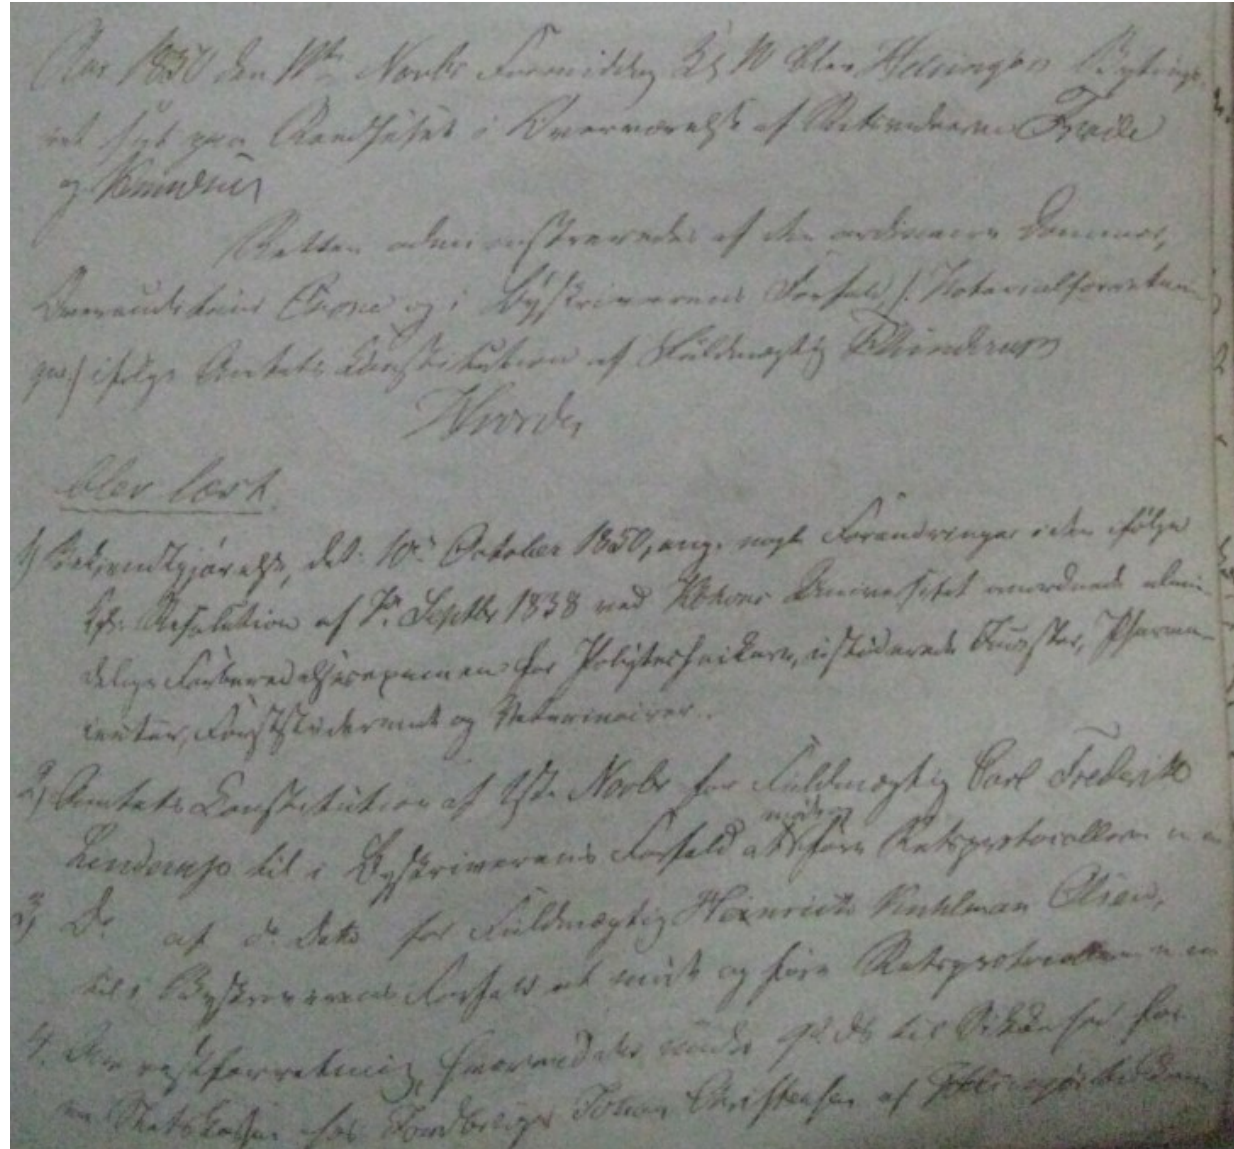 Aar 1850 den 11te Novbr Formiddag Kl 10 blev Helsingørs Bytings
ret sat paa Raadhuset i Overværelse af Retsvidnerne
og
Retten administreredes af den ordinaire Dommer,
Overauditeur Crone og i Byskriverens Forfald /: Notarialforretnin
ger :/ ifølge Amtets Constitution af Fuldmægtig
Hvorda
blev læst
1) Bekjendtgjørelse, dat: 10de October 1850, ang. nogle Forandringer i den ifølge
Kgl. Resolution af 7de Septbr 1838 ved Kbhvns Universitet anordnede almin
delige Forberedelsesexamen for Polytechnikere, ustuderede Jurister, Pharma-
ceuter, Forststuderende og Veterinairer.
2) Amtets Constitution af Novbr for Fuldmægtig Carl Frederik
til i Byskriverens Forfald at møde og føre Retsprotocollen m m
3) Do af do Dato for Fuldmægtig Heinrich Kuhlman Olsen,
til i Byskriverens Forfald at møde og føre Retsprotocollen m m
4. forretning, hvorved der under til for
Statskassen hos Johan Christensen af